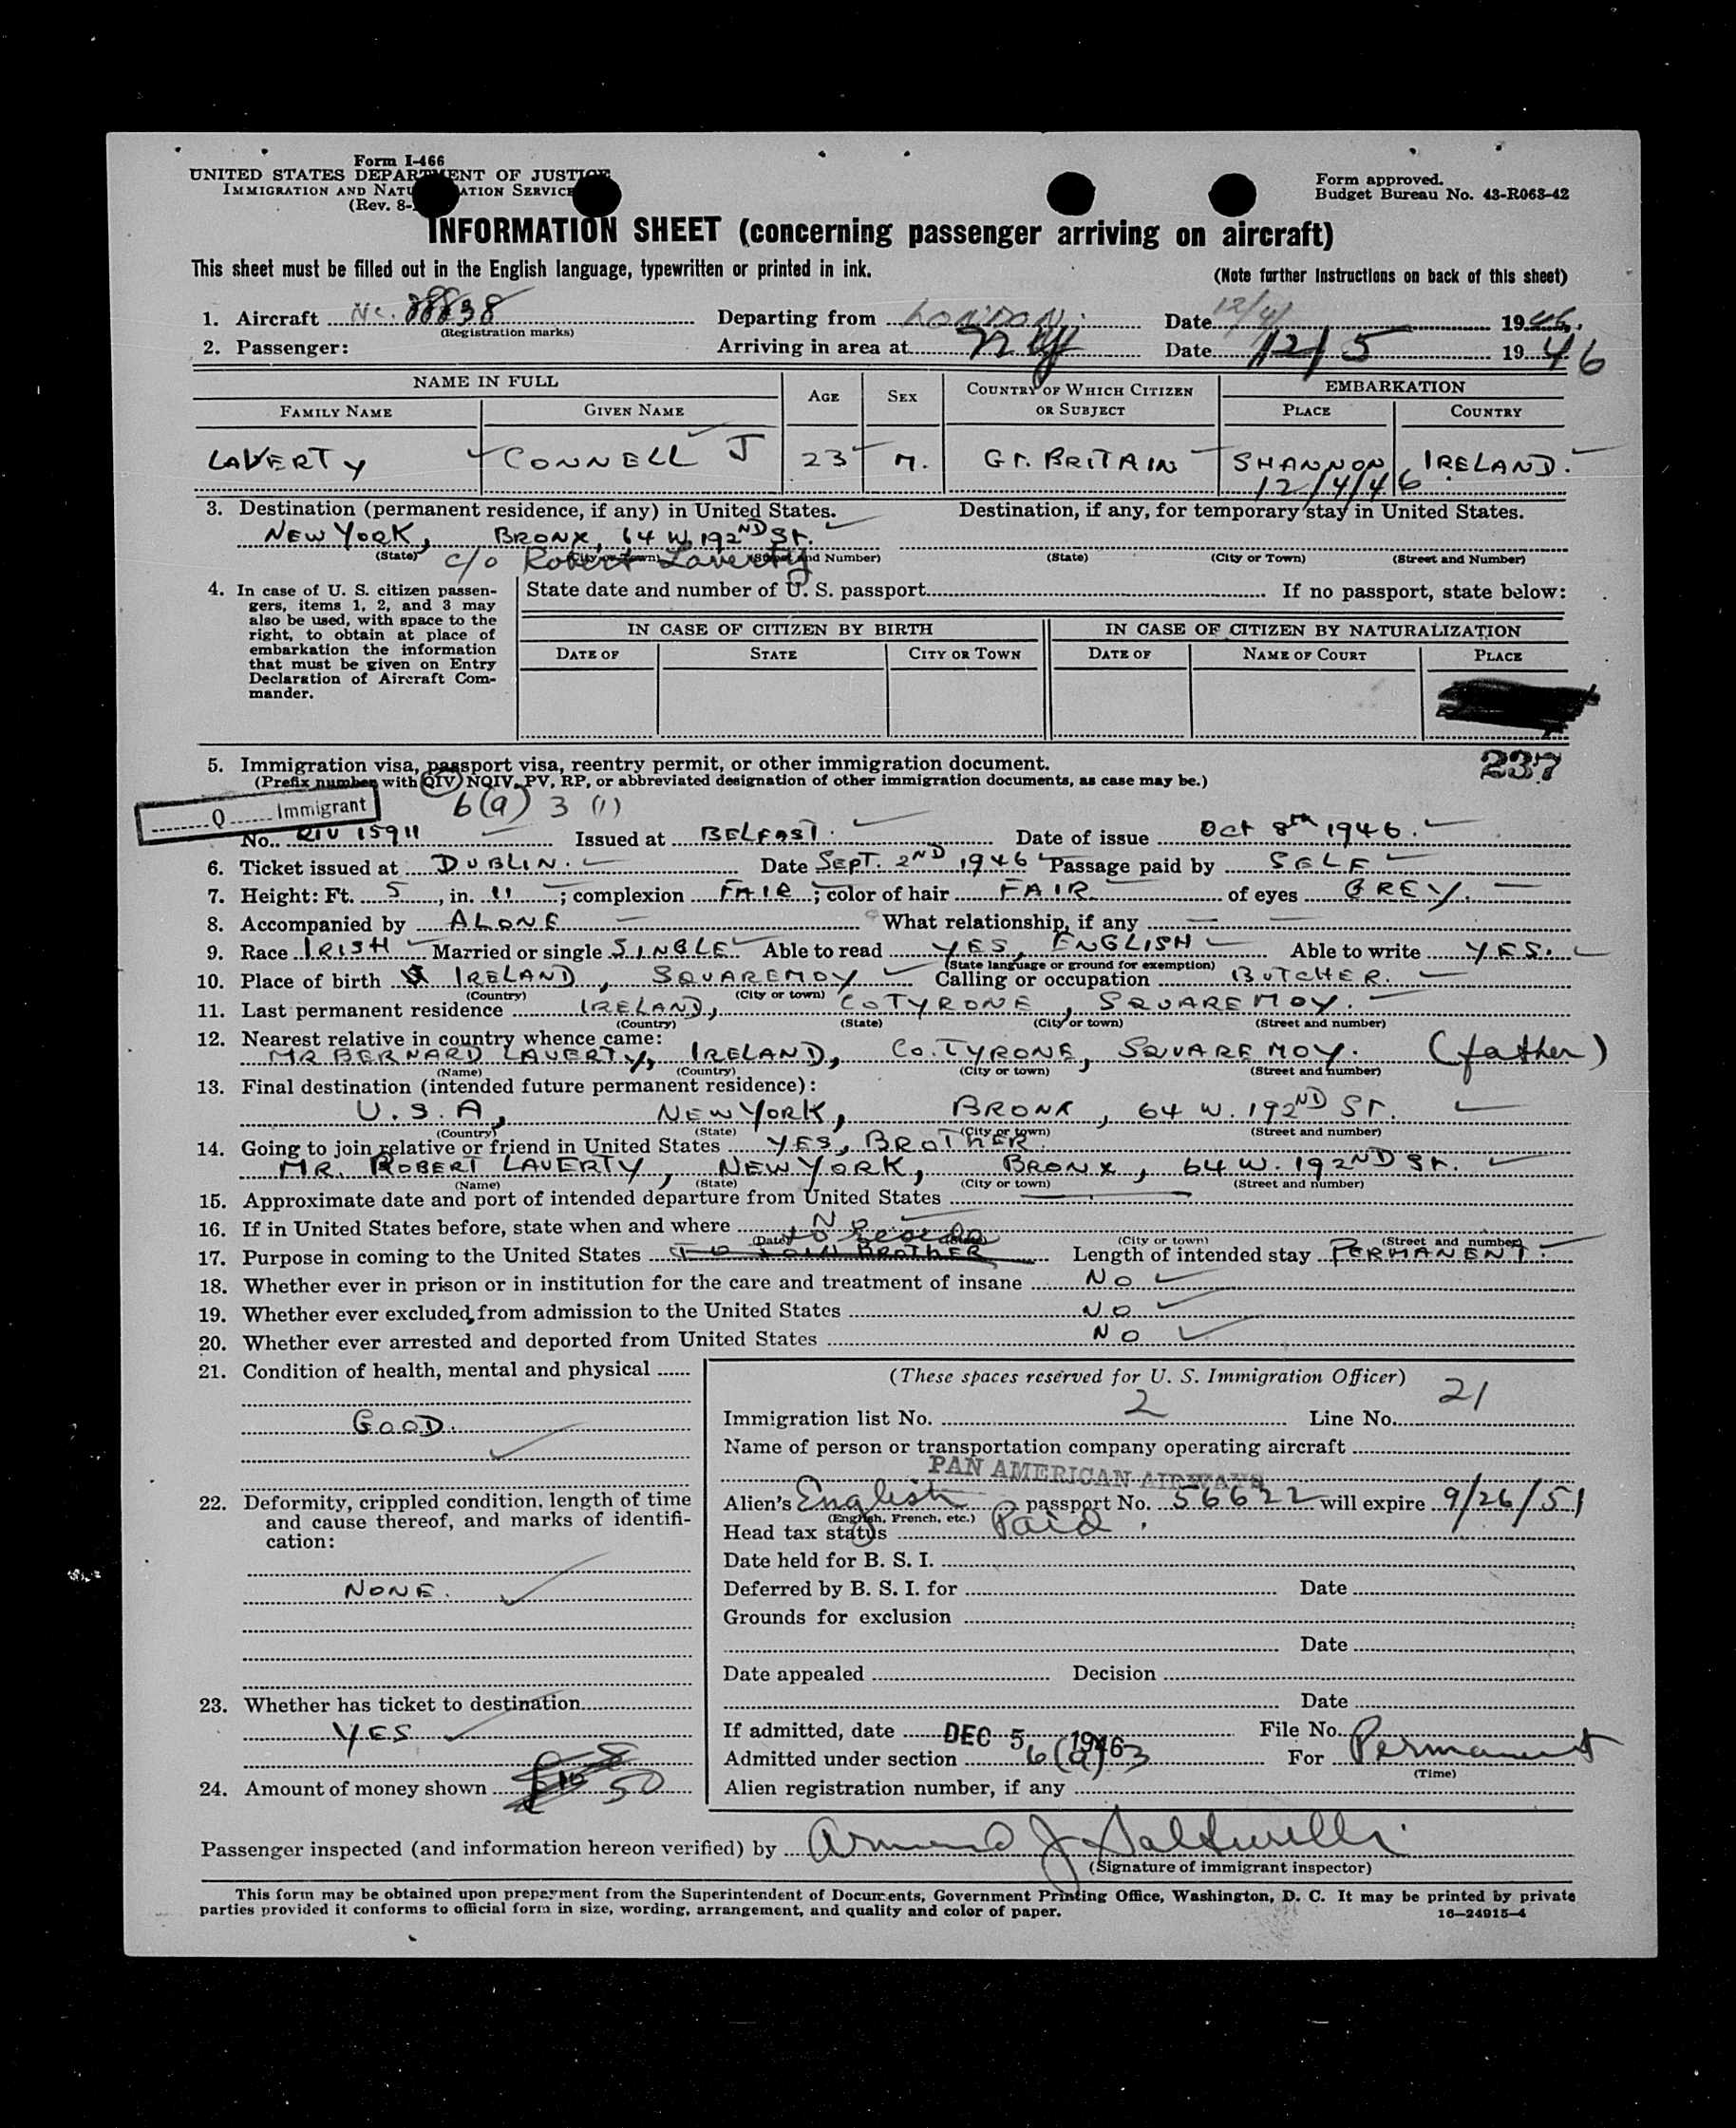 Form I-466
UNITED STATES DEPARTMENT OF JUSTICE
IMMIGRATION AND NATURALIZATION SERVICE
(Rev. 8-
Form approved.
Budget Bureau No. 43-R063-42
INFORMATION SHEET (concerning passenger arriving on aircraft)
This sheet must be filled out in the English language, typewritten or printed in ink.
(Note further instructions on back of this sheet)
1. Aircraft Nc. 88838 Departing from LONDON Date 12/4/ 1946.
(Registration marks)
2. Passenger: Arriving in area at NY Date 12/5 1946
NAME IN FULL AGE SEX COUNTRY OF WHICH CITIZEN OR SUBJECT EMBARKATION
FAMILY NAME GIVEN NAME PLACE COUNTRY
LAVERTY CONNELL J 23 M. GT. BRITAIN SHANNON, IRELAND.
12/4/46
3. Destination (permanent residence, if any) in United States. Destination, if any, for temporary stay in United States.
NEW YORK, BRONX, 64 W. 192ND St.
(State) (City or Town) (Street and Number) (State) (City or Town) (Street and Number)
c/o Robert Laverty
4. In case of U. S. citizen passengers, items 1, 2, and 3 may also be used, with space to the right, to obtain at place of embarkation the information that must be given on Entry Declaration of Aircraft Commander.
State date and number of U. S. passport If no passport, state below:
IN CASE OF CITIZEN BY BIRTH IN CASE OF CITIZEN BY NATURALIZATION
DATE OF STATE CITY OR TOWN DATE OF NAME OF COURT PLACE
237
5. Immigration visa, passport visa, reentry permit, or other immigration document.
(Prefix number with QIV, NQIV, PV, RP, or abbreviated designation of other immigration documents, as case may be.)
Q Immigrant
6(a) 3 (1)
No. QIV 15911 Issued at BELFAST. Date of issue Oct 8th 1946.
6. Ticket issued at DUBLIN. Date SEPT. 2ND 1946 Passage paid by SELF
7. Height: Ft. 5, in. 11; complexion FAIR; color of hair FAIR of eyes GREY.
8. Accompanied by ALONE What relationship, if any
9. Race IRISH Married or single SINGLE Able to read YES, ENGLISH Able to write YES.
(State language or ground for exemption)
10. Place of birth IRELAND, SQUAREMOY Calling or occupation BUTCHER.
(Country) (City or town)
11. Last permanent residence IRELAND, CO TYRONE, SQUAREMOY.
(Country) (State) (City or town) (Street and number)
12. Nearest relative in country whence came:
MR BERNARD LAVERTY, IRELAND, Co. TYRONE, SQUAREMOY. (father)
(Name) (Country) (City or town) (Street and number)
13. Final destination (intended future permanent residence):
U.S.A, NEW YORK, BRONX, 64 W. 192ND ST.
(Country) (State) (City or town) (Street and number)
14. Going to join relative or friend in United States YES, BROTHER.
MR. ROBERT LAVERTY, NEW YORK, BRONX, 64 W. 192ND St.
(Name) (State) (City or town) (Street and number)
15. Approximate date and port of intended departure from United States
16. If in United States before, state when and where No
(Date) (City or town) (Street and number)
to reside
17. Purpose in coming to the United States TO JOIN BROTHER Length of intended stay PERMANENT.
18. Whether ever in prison or in institution for the care and treatment of insane No
19. Whether ever excluded from admission to the United States NO
20. Whether ever arrested and deported from United States NO
21. Condition of health, mental and physical
GOOD.
22. Deformity, crippled condition, length of time and cause thereof, and marks of identification:
NONE.
23. Whether has ticket to destination
YES
24. Amount of money shown 50
(These spaces reserved for U. S. Immigration Officer)
Immigration list No. 2 Line No. 21
Name of person or transportation company operating aircraft
PAN AMERICAN AIRWAYS
Alien's English passport No. 56622 will expire 9/26/51
(English, French, etc.)
Head tax status Paid
Date held for B. S. I.
Deferred by B. S. I. for Date
Grounds for exclusion
Date
Date appealed Decision
Date
If admitted, date DEC 5 1946 File No.
Admitted under section 6(a)3 For Permanent
(Time)
Alien registration number, if any
Passenger inspected (and information hereon verified) by
(Signature of immigrant inspector)
This form may be obtained upon prepayment from the Superintendent of Documents, Government Printing Office, Washington, D. C. It may be printed by private
parties provided it conforms to official form in size, wording, arrangement, and quality and color of paper.
16—24915-4